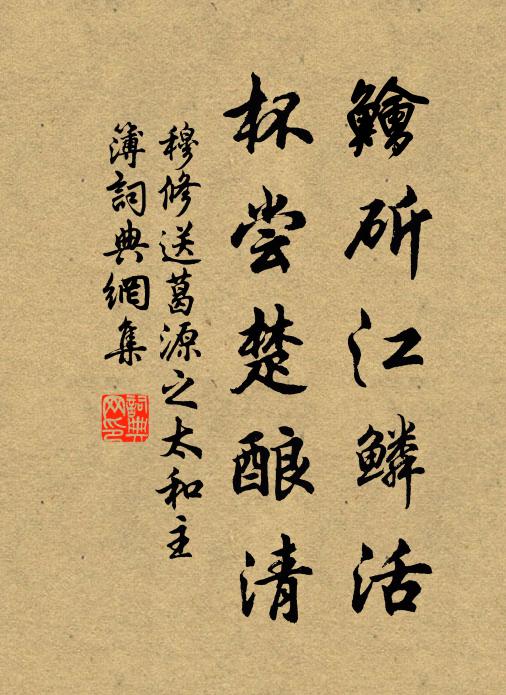 鱠斫江鱗活
杯尝楚酿清
穆修送葛源之太和主
簿詞典網集
詞典
网印